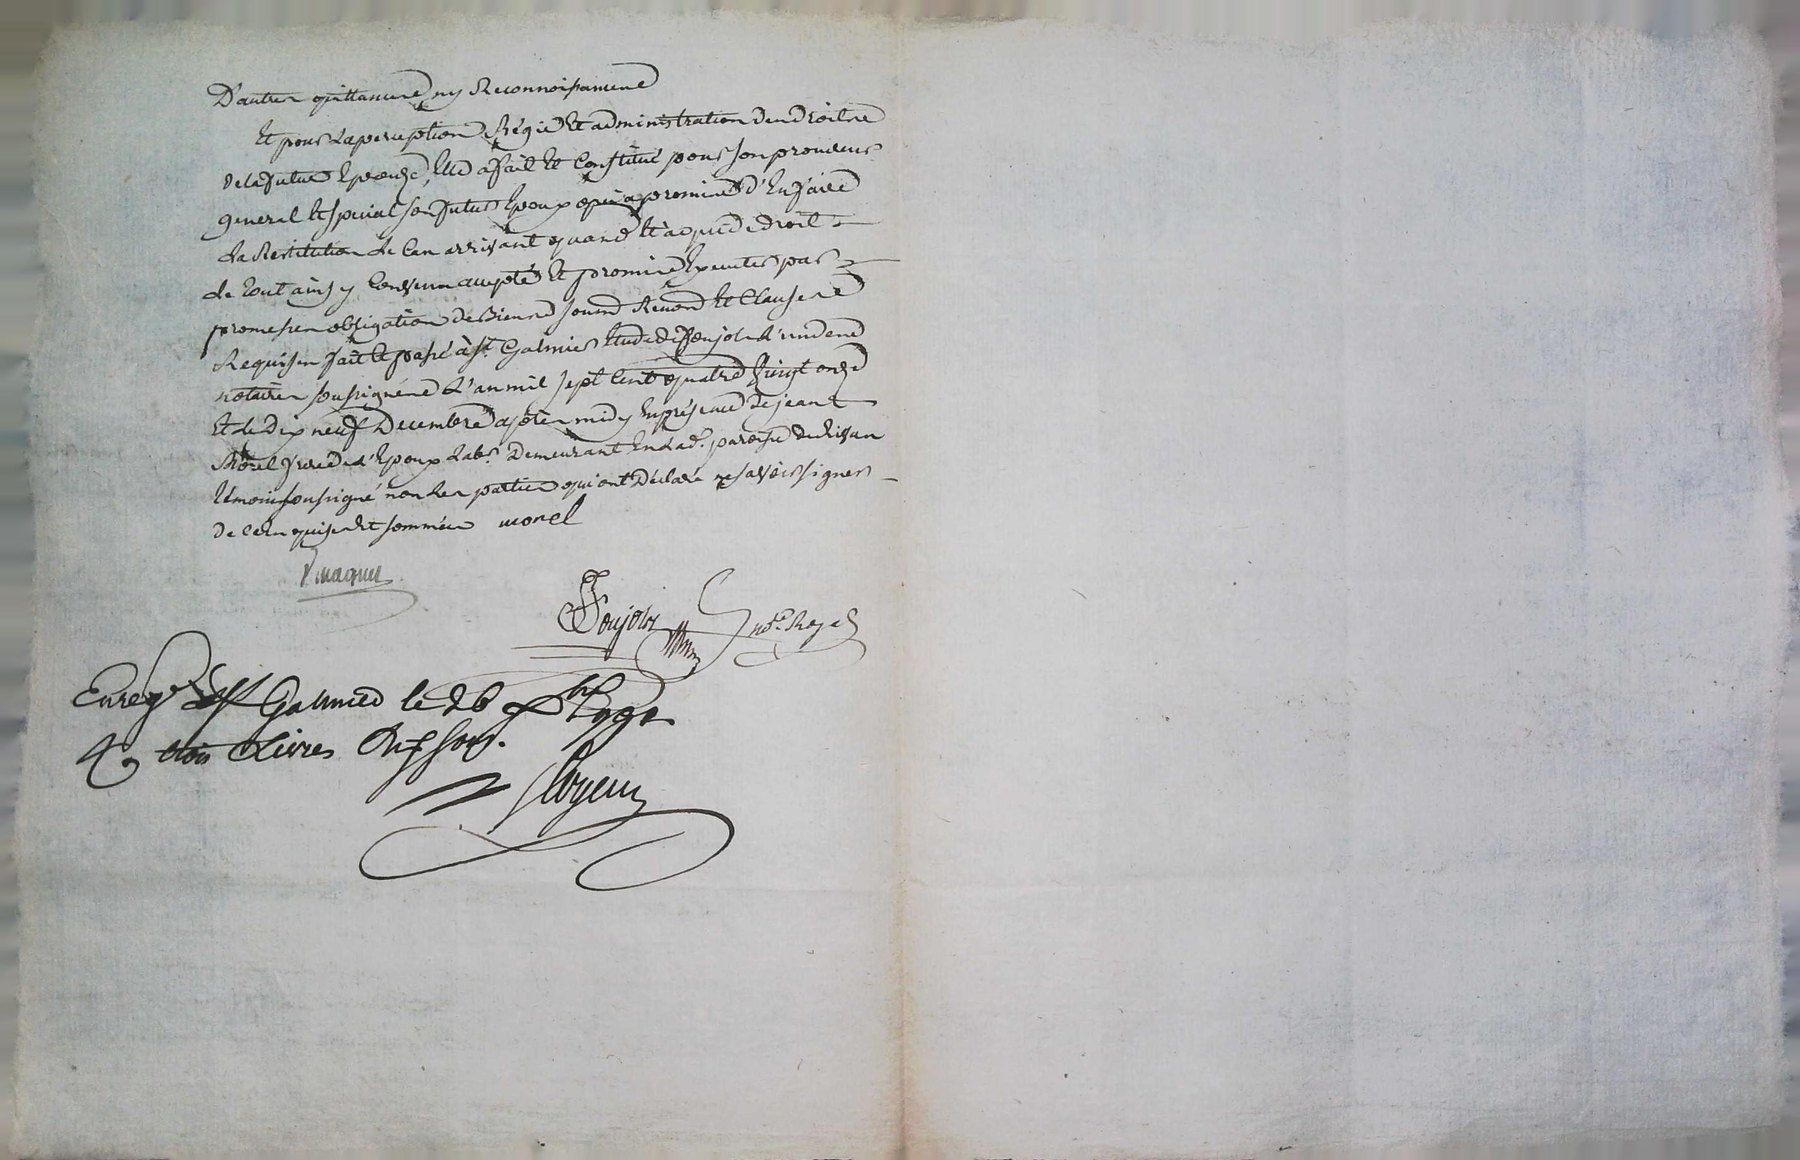 D'autres quittances ny Reconnoissances
Et pour La perception Régie Et administration des droits
de la future Epouze, Elle a fait Et Constitué pour son procureur
general Et special son futur Epoux qui a promis d'En faire
La Restitution Le Cas arrivant quand Et à qui de droit
Le tout ainsy Convenu accepté Et promis Executer par
promesses obligation de Biens soums Renonc Et Clauses
Requises fait Et passé à St Galmier Etude de Ponjolx L'un des
notaires soussignés L'an mil sept Cent quatre vingt onze
Et Le Dix neuf Decembre après midy En présence de jean
Morel Labr Demeurant En Lad. paroisse de
témoin soussigné non Les parties qui ont Déclaré ne savoir signer
De Ce Enquises Et sommées morel
Ponjolx
nore Royal
Enregé à St Galmier le 26 xbre 1791
R trois Livres dix sous.